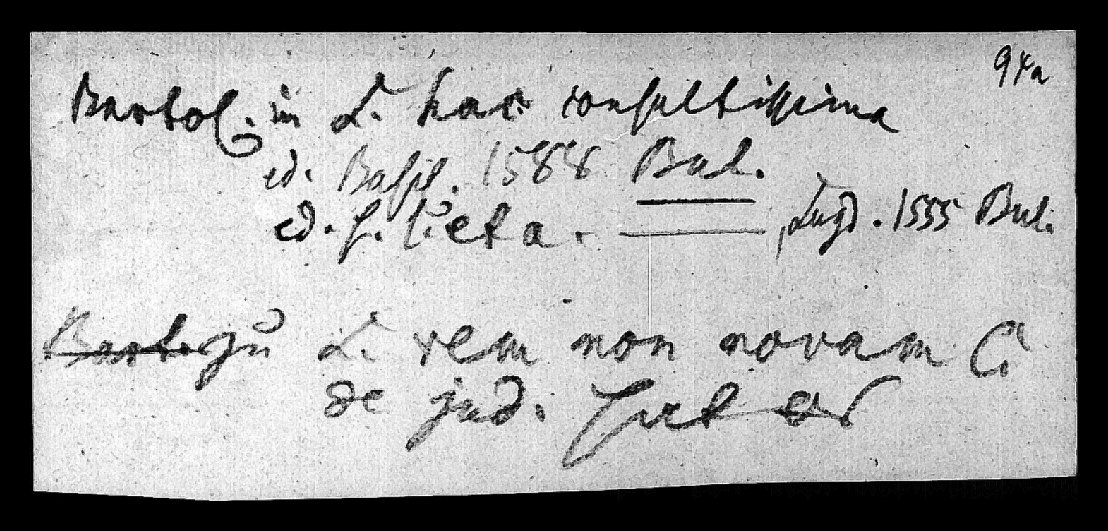 94a
Bartol. in L. hac consultissima
ed. Basil. 1588 Bal.
ed. s. l. et a. — Lugd. 1555 Bal.
Bart. zu L. rem non novam C.
de jud. hat er